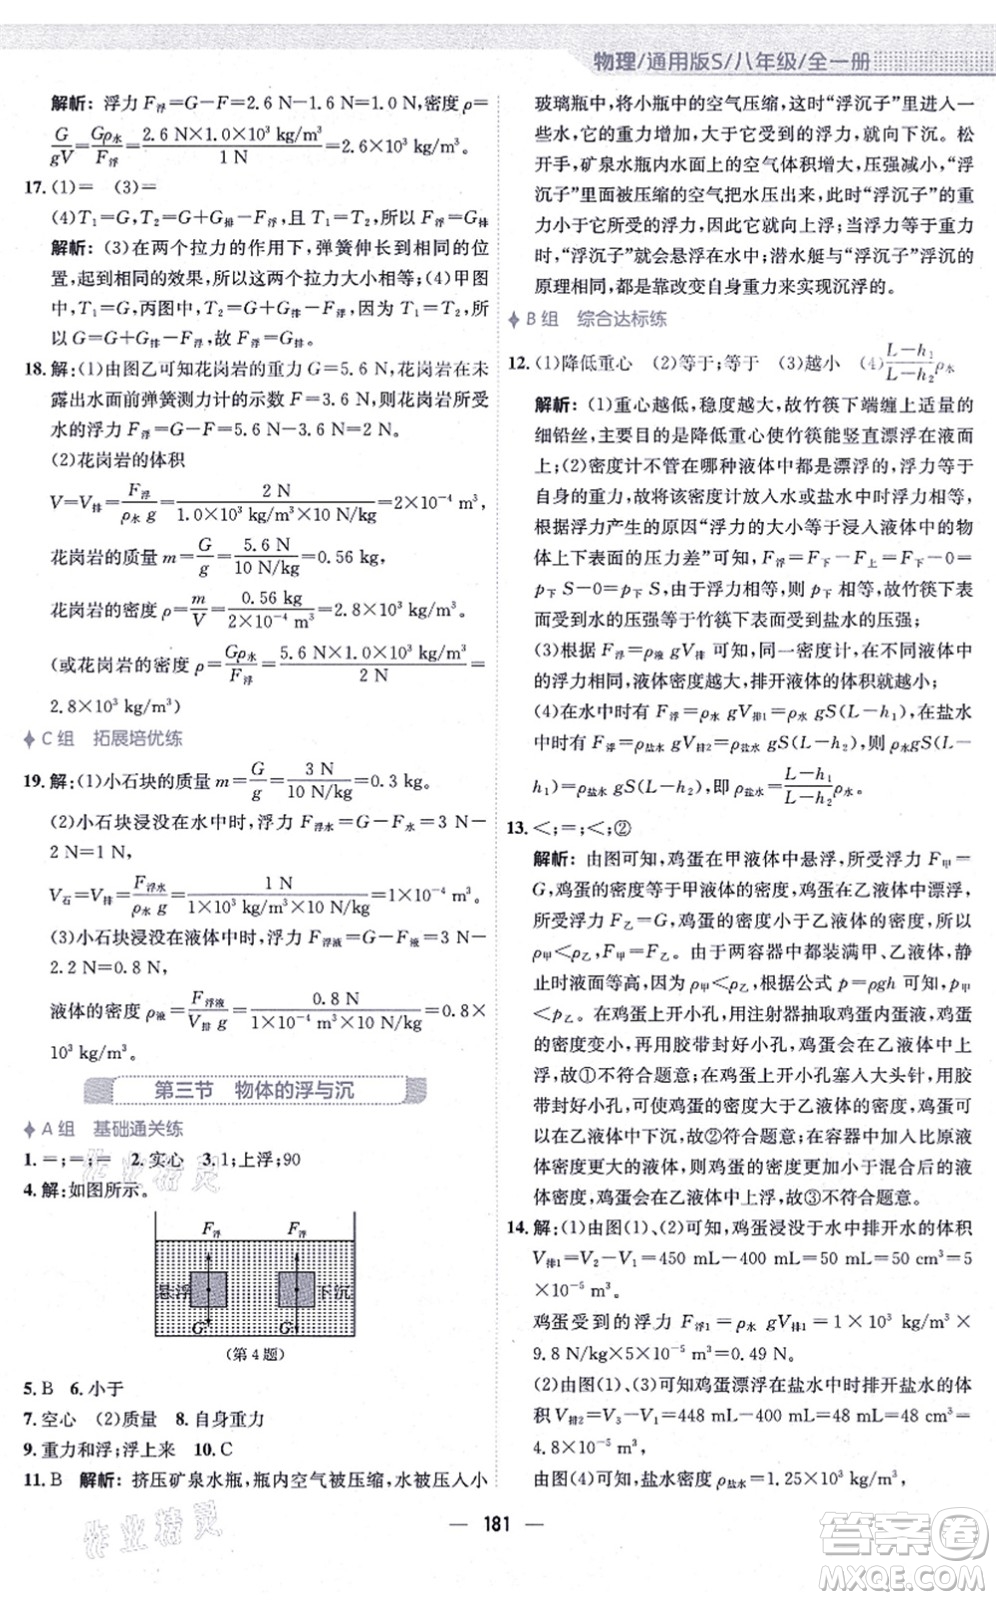 物理/通用版S/八年级/全一册
解析: 浮力 F浮=G－F=2.6 N－1.6 N=1.0 N,密度 ρ=
G/gV=Gρ水/F浮=2.6 N×1.0×10³ kg/m³/1 N=2.6×10³ kg/m³。
17. (1)=　(3)=
(4)T₁=G,T₂=G+G排－F浮,且 T₁=T₂,所以 F浮=G排
解析: (3)在两个拉力的作用下,弹簧伸长到相同的位
置,起到相同的效果,所以这两个拉力大小相等;(4)甲图
中,T₁=G,丙图中,T₂=G+G排－F浮,因为 T₁=T₂,所以
G=G+G排－F浮,故 F浮=G排。
18. 解: (1)由图乙可知花岗岩的重力 G=5.6 N,花岗岩在未
露出水面前弹簧测力计的示数 F=3.6 N,则花岗岩所受
水的浮力 F浮=G－F=5.6 N－3.6 N=2 N。
(2)花岗岩的体积
V=V排=F浮/ρ水 g=2 N/1.0×10³ kg/m³×10 N/kg=2×10⁻⁴ m³,
花岗岩的质量 m=G/g=5.6 N/10 N/kg=0.56 kg,
花岗岩的密度 ρ=m/V=0.56 kg/2×10⁻⁴ m³=2.8×10³ kg/m³。
(或花岗岩的密度 ρ=Gρ水/F浮=5.6 N×1.0×10³ kg/m³/2 N=
2.8×10³ kg/m³)
C 组　拓展培优练
19. 解: (1)小石块的质量 m=G/g=3 N/10 N/kg=0.3 kg。
(2)小石块浸没在水中时,浮力 F浮水=G－F水=3 N－
2 N=1 N,
V石=V排=F浮水/ρ水 g=1 N/1×10³ kg/m³×10 N/kg=1×10⁻⁴ m³。
(3)小石块浸没在液体中时,浮力 F浮液=G－F液=3 N－
2.2 N=0.8 N,
液体的密度 ρ液=F浮液/V排 g=0.8 N/1×10⁻⁴ m³×10 N/kg=0.8×
10³ kg/m³。
第三节　物体的浮与沉
A 组　基础通关练
1. =;=;=　2. 实心　3. 1;上浮;90
4. 解:如图所示。
F浮　F浮
悬浮　下沉
G　G
(第 4 题)
5. B　6. 小于
7. 空心　(2)质量　8. 自身重力
9. 重力和浮;浮上来　10. C
11. B　解析: 挤压矿泉水瓶,瓶内空气被压缩,水被压入小
玻璃瓶中,将小瓶中的空气压缩,这时“浮沉子”里进入一
些水,它的重力增加,大于它受到的浮力,就向下沉。松
开手,矿泉水瓶内水面上的空气体积增大,压强减小,“浮
沉子”里面被压缩的空气把水压出来,此时“浮沉子”的重
力小于它所受的浮力,因此它就向上浮。当浮力等于重
力时,“浮沉子”悬浮在水中;潜水艇与“浮沉子”浮沉的
原理相同,都是靠改变自身重力来实现沉浮的。
B 组　综合达标练
12. (1)降低重心　(2)等于;等于　(3)越小　(4)L－h₁/L－h₂ρ水
解析: (1)重心越低,稳度越大,故竹筷下端缠上适量的
细铅丝,主要目的是降低重心使竹筷能竖直漂浮在液面
上;(2)密度计不管在哪种液体中都是漂浮的,浮力等于
自身的重力,故将该密度计放入水或盐水中,浮力相等,
根据浮力产生的原因“浮力的大小等于浸入液体中的物
体上下表面的压力差”可知,F浮=F下－F上=F下－0=
p下 S－0=p下 S,由于浮力相等,p下 相等,故竹筷下表
面受到水的压强等于竹筷下表面受到盐水的压强;
(3)根据 F浮=ρ液 gV排 可知,密度计在不同液体中受到
的浮力相同,液体密度越大,排开液体的体积就越小;
(4)在水中时有 F浮=ρ水 gV排1=ρ水 gS(L－h₁),在盐水
中时有 F浮=ρ盐水 gV排2=ρ盐水 gS(L－h₂),则 ρ水gS(L－
h₁)=ρ盐水 gS(L－h₂),即 ρ盐水=L－h₁/L－h₂ρ水。
13. <;=;<;②
解析: 由图可知,鸡蛋在甲液体中悬浮,所受浮力 F甲=
G,鸡蛋的密度等于甲液体的密度,鸡蛋在乙液体中漂浮,
所受浮力 F乙=G,鸡蛋的密度小于乙液体的密度,所以
ρ甲<ρ乙,F甲=F乙。由于两容器中都装满甲、乙液体,静
止时液面等高,因为 ρ甲<ρ乙,根据公式 p=ρgh 可知,p甲
<p乙。在鸡蛋上开小孔,用注射器抽取鸡蛋内蛋液,鸡蛋
的密度变小,用胶带封好小孔,鸡蛋会在甲液体中上浮,
故①不符合题意;在鸡蛋上开小孔塞入大头针,用胶
带封好小孔,鸡蛋的密度变大,故鸡蛋可能会在甲、乙
液体中下沉,故②符合题意;在甲液体中加入与鸡蛋
密度更大的液体,鸡蛋的密度会小于混合后的液体密
度,则鸡蛋会在乙液体中上浮,故③不符合题意。
14. 解: (1)由图(1)、(2)可知,鸡蛋浸没于水中排开水的体积
V排1=V₂－V₁=450 mL－400 mL=50 mL=50 cm³=5
×10⁻⁵ m³。
鸡蛋受到的浮力 F浮1=ρ水 gV排1=1.0×10³ kg/m³×
9.8 N/kg×5×10⁻⁵ m³=0.49 N。
(2)由图(1)、(3)可知,鸡蛋漂浮在盐水中时排开盐水的体
积 V排2=V₃－V₁=448 mL－400 mL=48 mL=48 cm³=
4.8×10⁻⁵ m³。
由图(4)可知,盐水密度 ρ盐水=1.25×10³ kg/m³,
— 181 —
作业精灵
作业精灵
答案卷
MXQE.COM